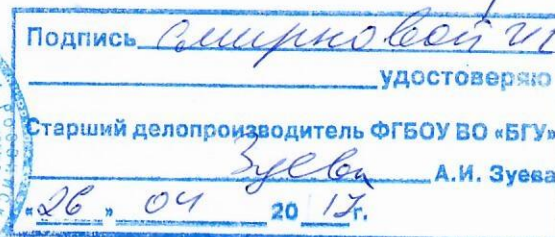 Подпись Смирновой
удостоверяю
Старший делопроизводитель ФГБОУ ВО «БГУ»
Зуева А.И. Зуева
«26» 04 2017г.